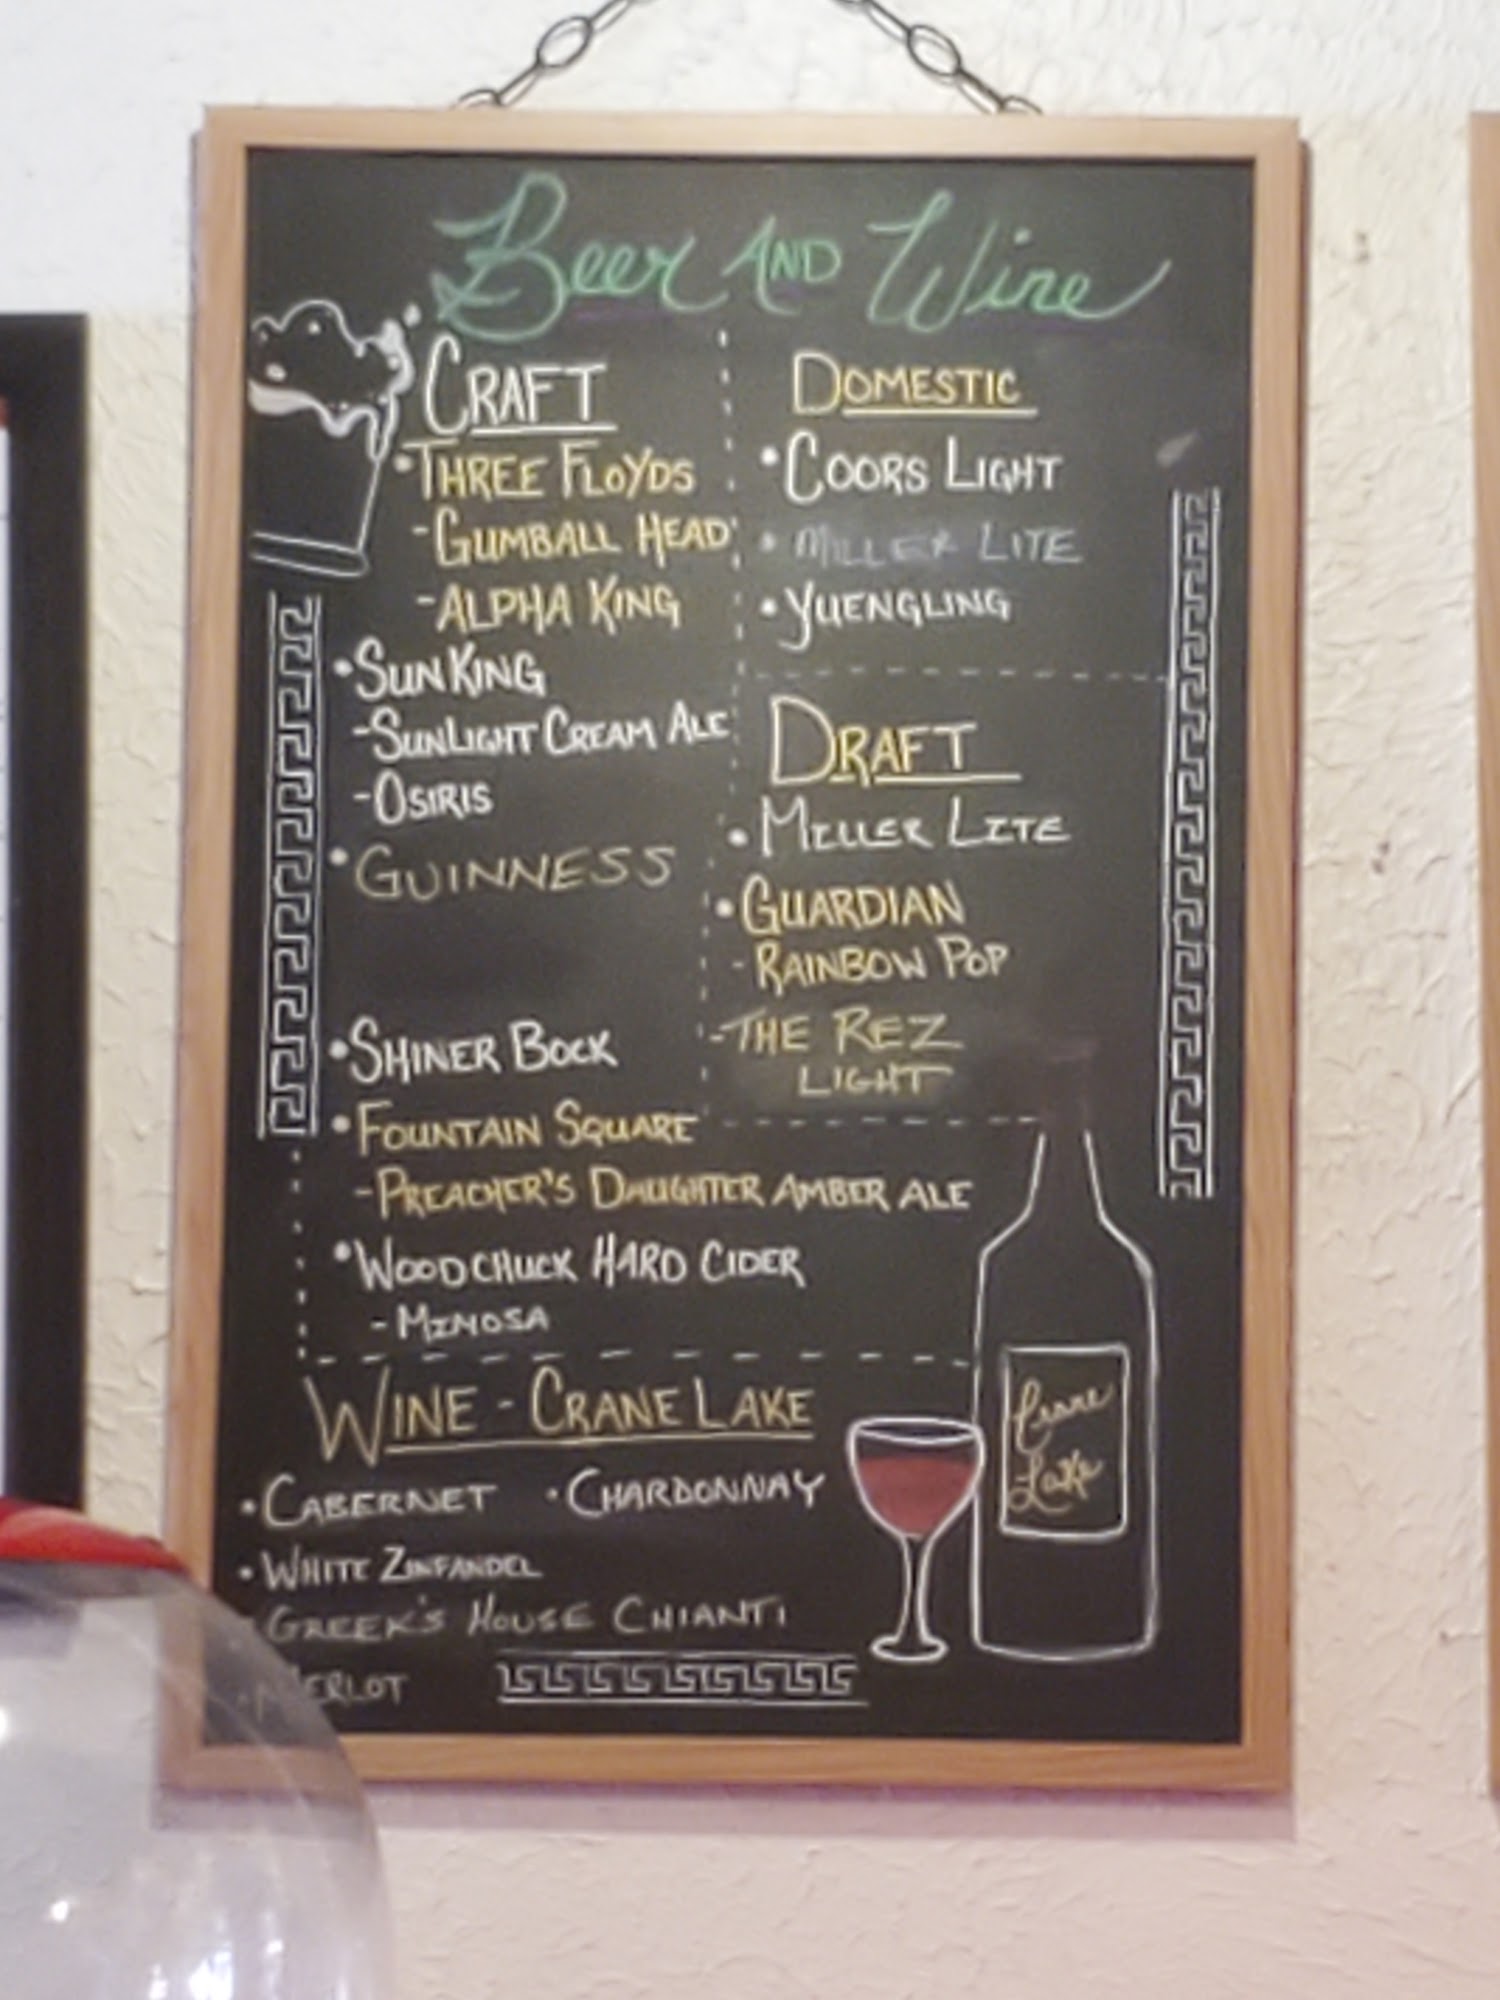 Beer AND Wine
CRAFT
• THREE FLOYDS
- GUMBALL HEAD
- ALPHA KING
• SUN KING
- SUNLIGHT CREAM ALE
- OSIRIS
• GUINNESS
• SHINER BOCK
• FOUNTAIN SQUARE
- PREACHER'S DAUGHTER AMBER ALE
• WOODCHUCK HARD CIDER
- MIMOSA
DOMESTIC
• COORS LIGHT
• MILLER LITE
• YUENGLING
DRAFT
• MILLER LITE
• GUARDIAN
- RAINBOW POP
- THE REZ
LIGHT
WINE - CRANE LAKE
• CABERNET • CHARDONNAY
• WHITE ZINFANDEL
GREEK'S HOUSE CHIANTI
• MERLOT
Crane
Lake